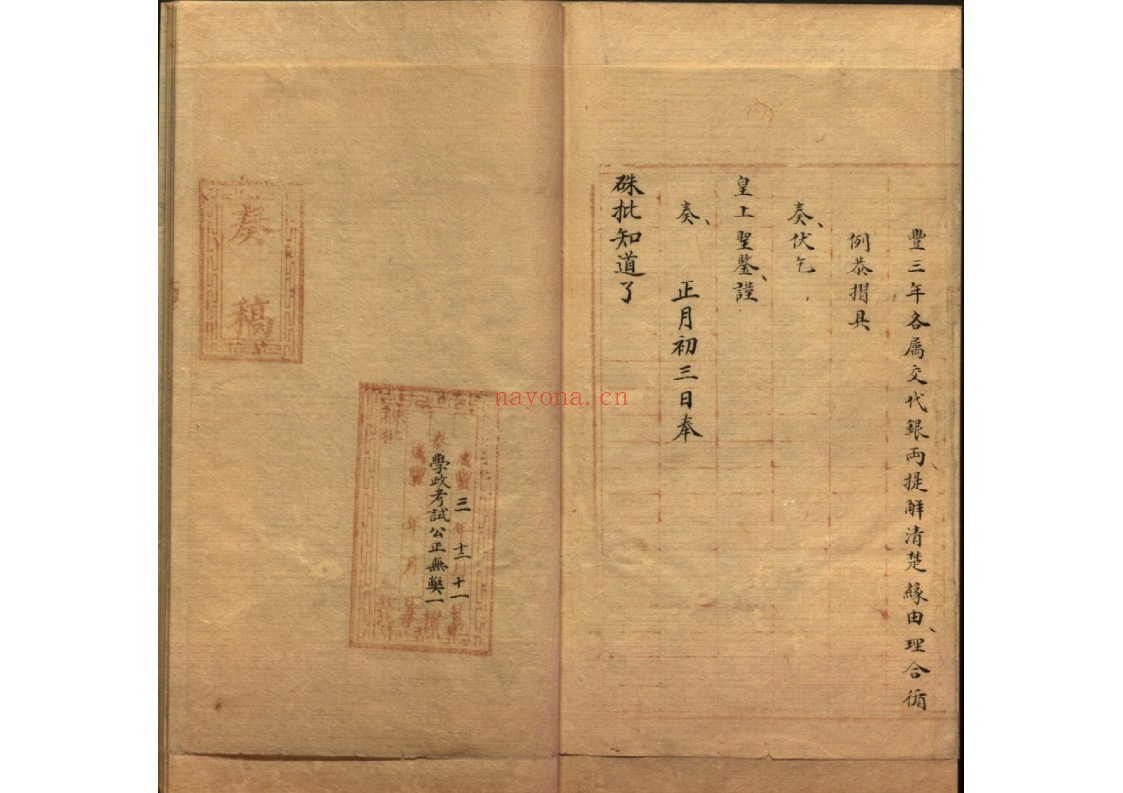 豐三年各属交代銀兩、提解清楚緣由、理合循
例恭摺具
奏、伏乞
皇上聖鑒、謹
奏、 正月初三日奉
硃批知道了
咸豐三年十二月十一
奏學政考試公正無弊一摺
咸豐 年 月
硃批
奏稿
nayona.cn